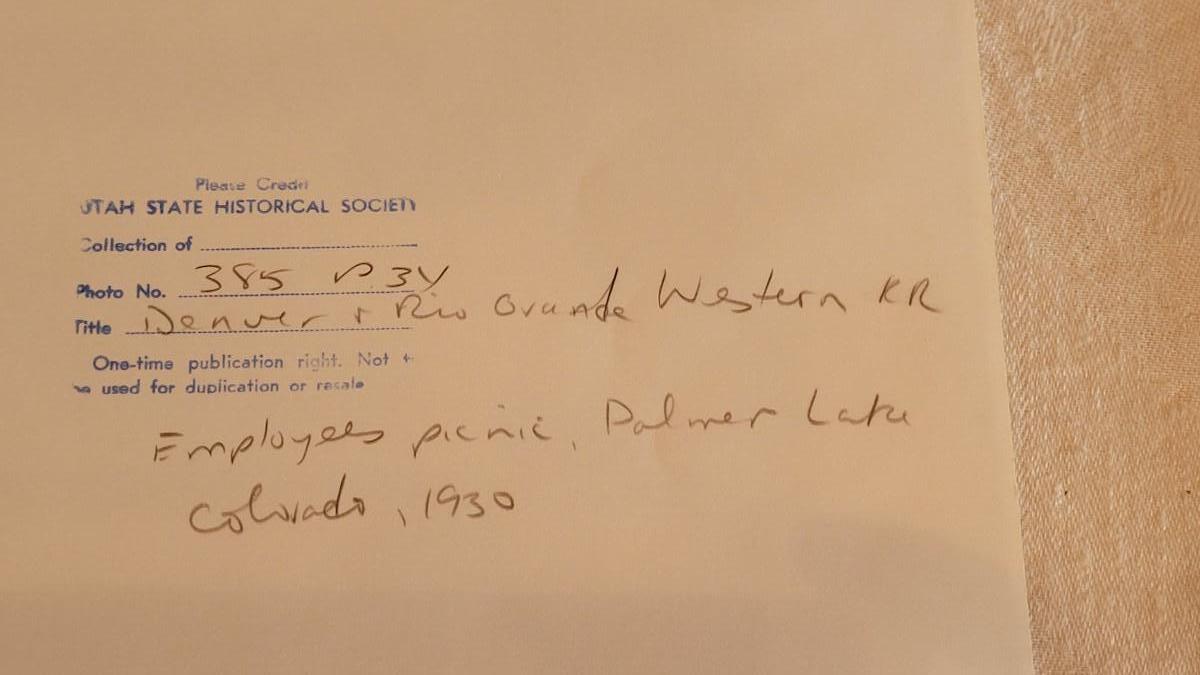 Please Credit
UTAH STATE HISTORICAL SOCIETY
Collection of
Photo No. 385 P.34
Title Denver + Rio Grande Western RR
One-time publication right. Not t
be used for duplication or resale
Employees picnic, Palmer Lake
Colorado, 1930